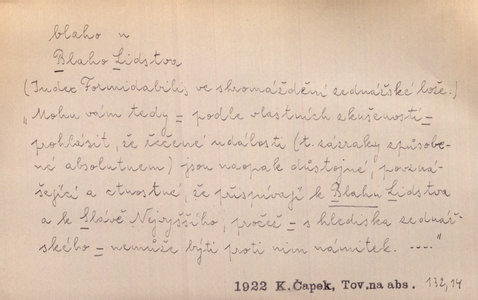 blaho n
Blaho Lidstva
(Judex Formidabilis ve shromáždění zednářské lože:)
„Mohu vám tedy = podle vlastních zkušeností =
prohlásit, že řečené události (t. zázraky způsobe-
né absolutnem) jsou naopak důstojné, povzná-
šející a ctnostné, že přispívají k Blahu Lidstva
a k Slávě Nejvyššího, pročež = s hlediska zednář-
ského = nemůže býti proti nim námitek. ....“
1922 K. Čapek, Tov.na abs. 132,14